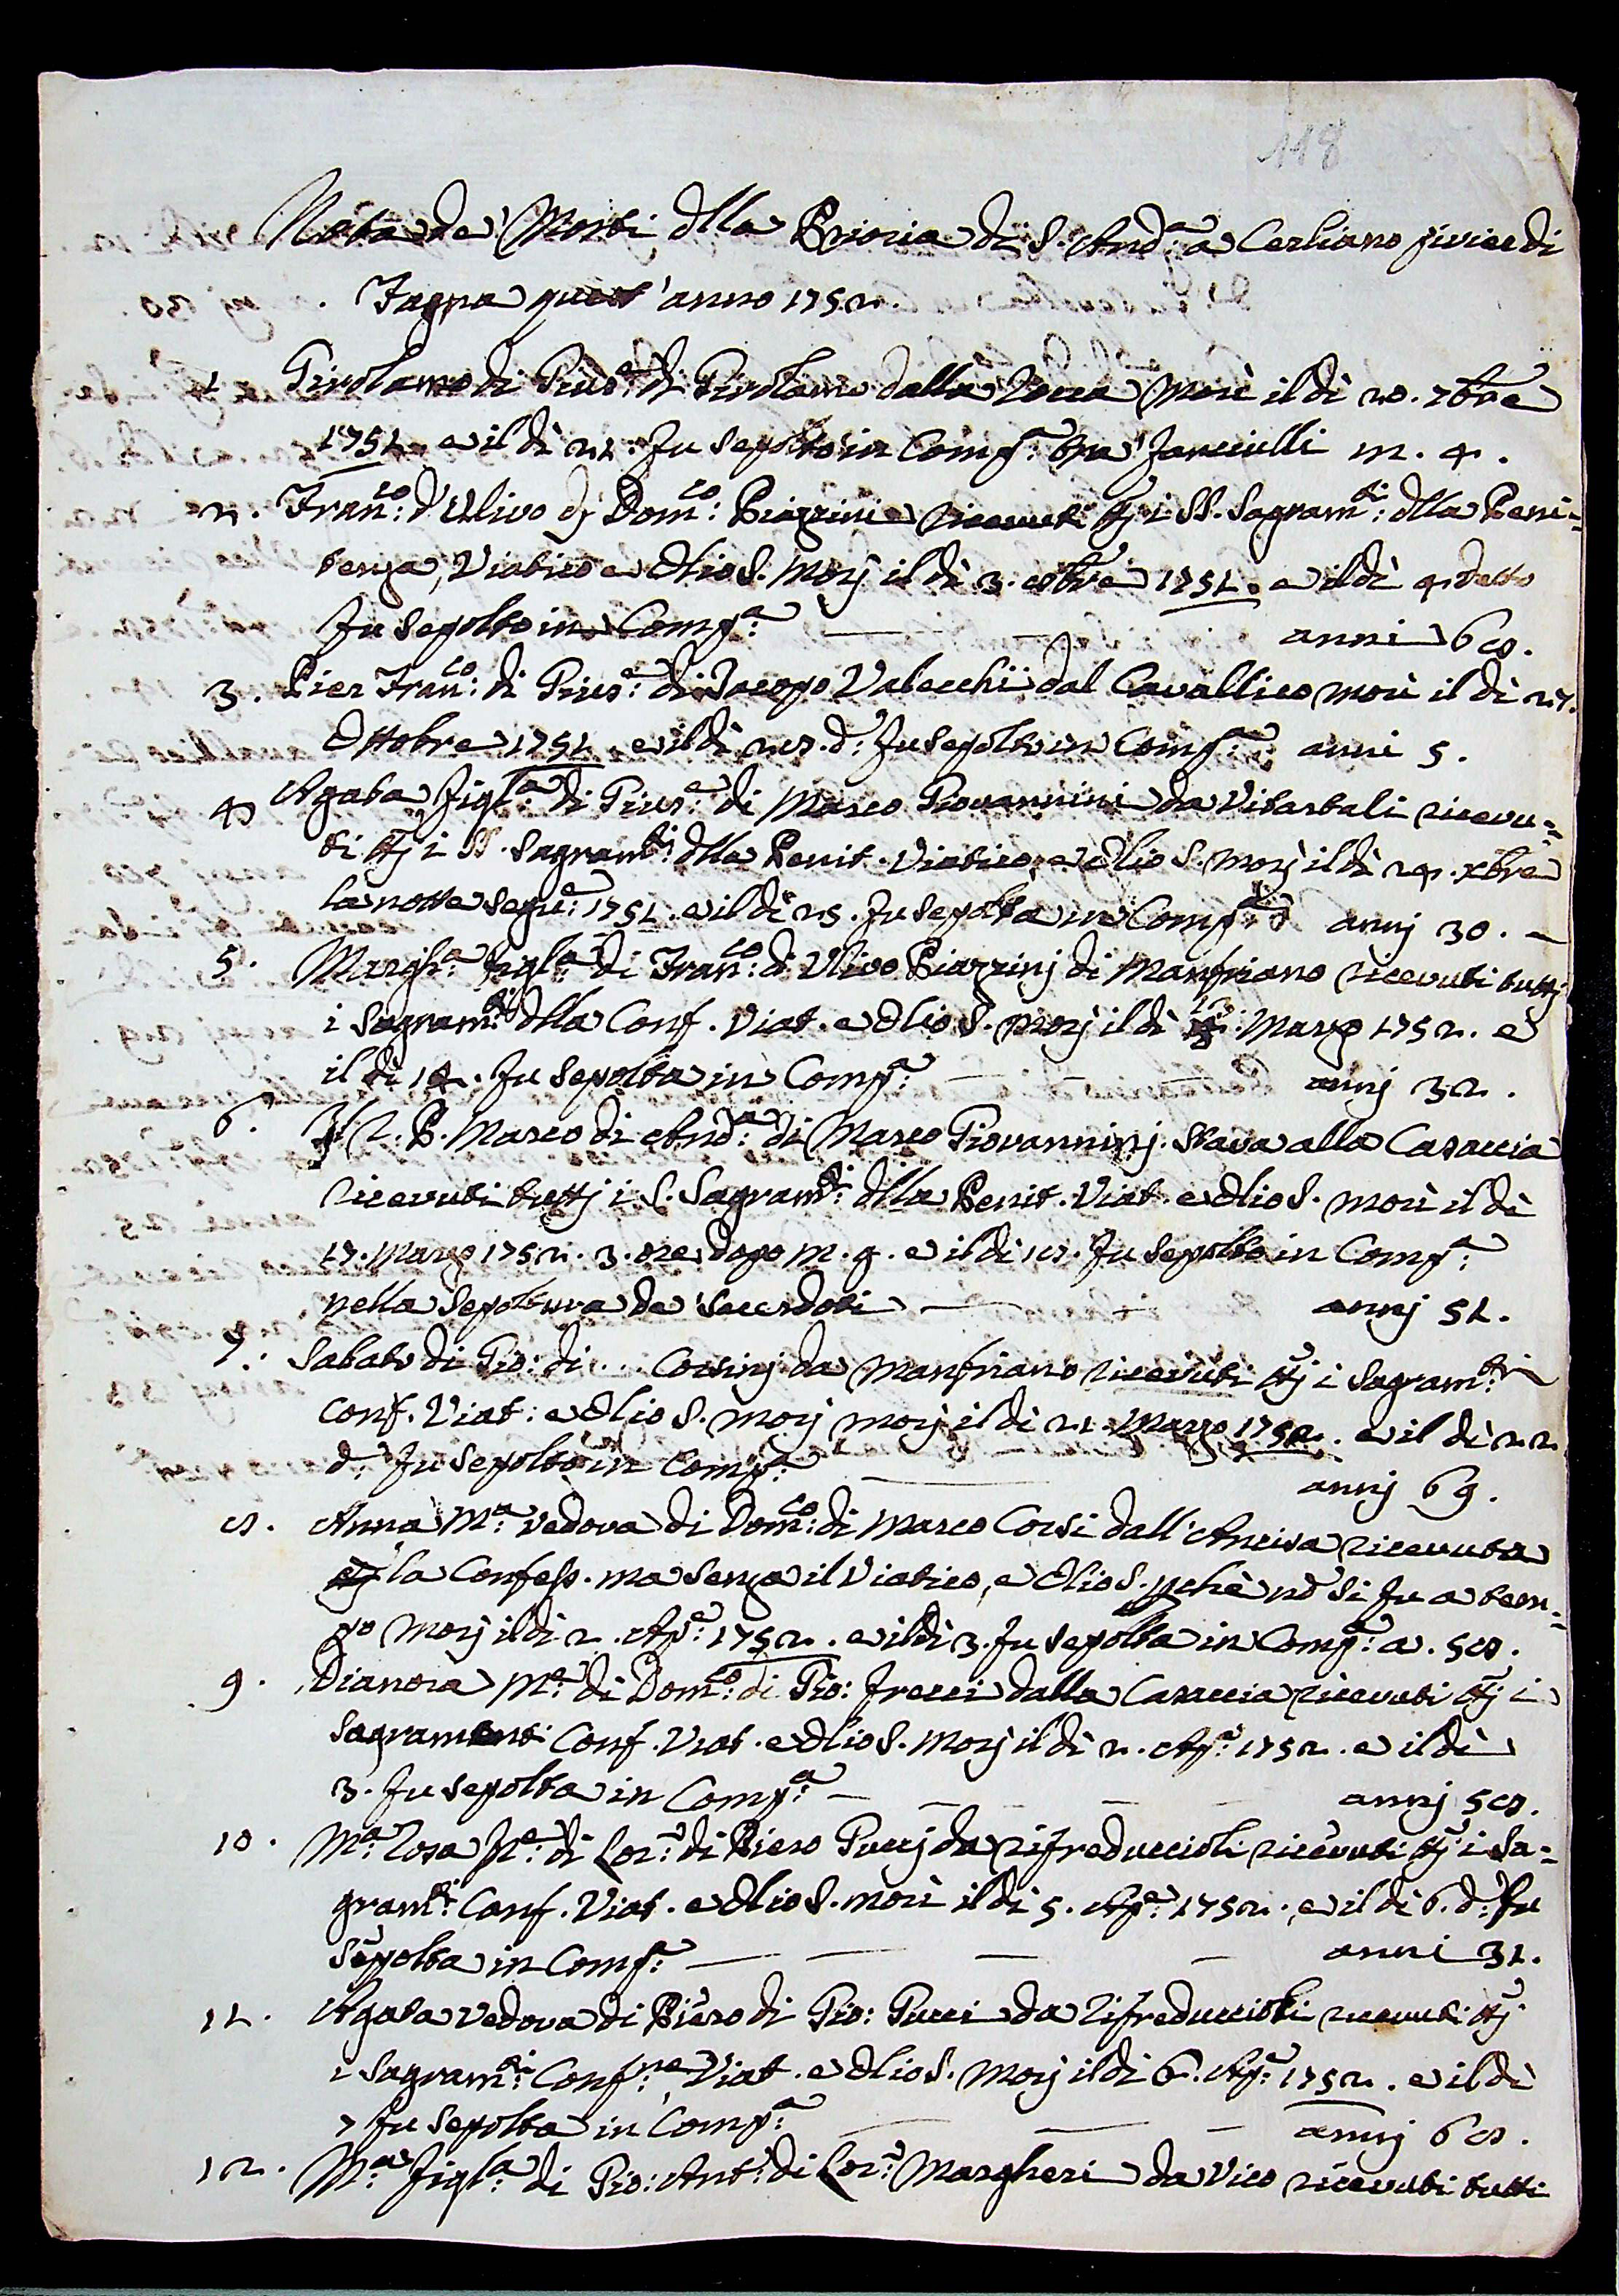 118
Nota de' Morti dlla Prioria di S. And:ª a Cerliano pivier di
Fagna quest' anno 1752.
1 Girolamo di Gius:e di Girolamo dalla Rocca Morì il dì 20. 7bre
1751 e il dì 21. fu sepolto in Comp:ª tra' fanciulli m. 4.
2. Fran:co d'Ulivo di Dom:co Piazzini ricevuti ttj i SS. Sagram:ti dlla Peni-
tenza, Viatico e Olio S. Morj il dì 3. 8bre 1751. e il dì 4 detto
fu sepolto in Comp:ª anni 68.
3. Pier Fran:co di Gius:e di Jacopo Valecchi dal Cavallico morì il dì 27.
Ottobre 1751 e il dì 28. d:o fu sepolto in Comp:ª anni 5.
4 Agata figl:ª di Gius:e di Marco Giovannini da Vitartali ricevu-
ti ttj i SS. Sagram:ti dlla Penit. Viatico, e Olio S. morj il dì 24. Xbre
la notte segu:e 1751. e il dì 25. fu sepolta in Comp:ª d annj 30.
5. Margh:ª figl:ª di Fran:co di Ulivo Piazzinj di Manfriano ricevuti tuttj
i Sagram:ti dlla Conf. Viat. e Olio S. morj il dì 13 Marzo 1752. e
il dì 14. fu sepolta in Comp:ª annj 32.
6. Il R. P. Marco di And:ª di Marco Giovanninj. Stava alla Casaccia
ricevuti tuttj i S. Sagram:ti dlla Penit. Viat. e Olio S. morì il dì
17. Marzo 1752. 3. ore dopo m. g. e il dì 18. fu sepolto in Comp:ª
nella Sepoltura da Sacerdoti annj 51.
7. Sabato di Gio: di ... Corsinj da Manfriano ricevuti ttj i Sagram:ti
Conf. Viat: e Olio S. morj morj il dì 21 Marzo 1752. e il dì 22
d: fu sepolto in Comp:ª annj 69.
8. Anna M:ª vedova di Dom:co di Marco Corsi dall'Ancisa ricevuta
la Confess. ma senza il Viatico, e Olio S. pchè nõ si fu a tem-
po morj il dì 2. Ap:e 1752. e il dì 3. fu sepolta in Comp:ª a. 58.
9. Dianora M:e di Dom:co di Gio: Frecci dalla Casaccia ricevuti ttj i
Sagramenti Conf. Viat. e Olio S. Morj il dì 2. Ap:e 1752. e il dì
3. fu sepolta in Comp:ª annj 58.
10. M:ª Rosa f:ª di Lor:o di Piero Puccj da Rifreduccioli ricevuti ttj i Sa-
gram:ti Conf. Viat. e Olio S. morì il dì 5. Ap:e 1752. e il dì 6. d: fu
sepolta in Comp:ª anni 31.
11. Agata Vedova di Piero di Gio: Pucci da Rifreduccioli ricevuti ttj
i Sagram:ti Conf:ne Viat. e Olio S. Morj il dì 6. Ap:e 1752. e il dì
7 fu sepolta in Comp:ª annj 68.
12. M:ª figl:ª di Gio: Ant:o di Lor:o Margheri da Vico ricevuti tutti